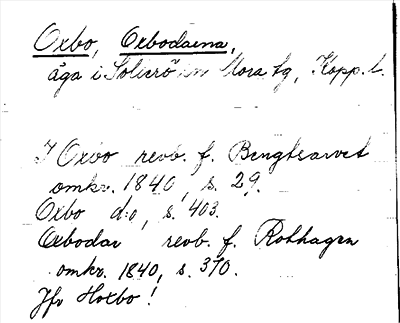 Oxbo, Oxbodarna,
äga i Sollerö sn Mora tg, Kopp. l.
I Oxbo revb. f. Bengtsarvet
omkr. 1840, s. 29.
Oxbo d:o, s. 403.
Oxbodar revb. f. Rothagen
omkr. 1840, s. 370.
Jfr Hoxbo!